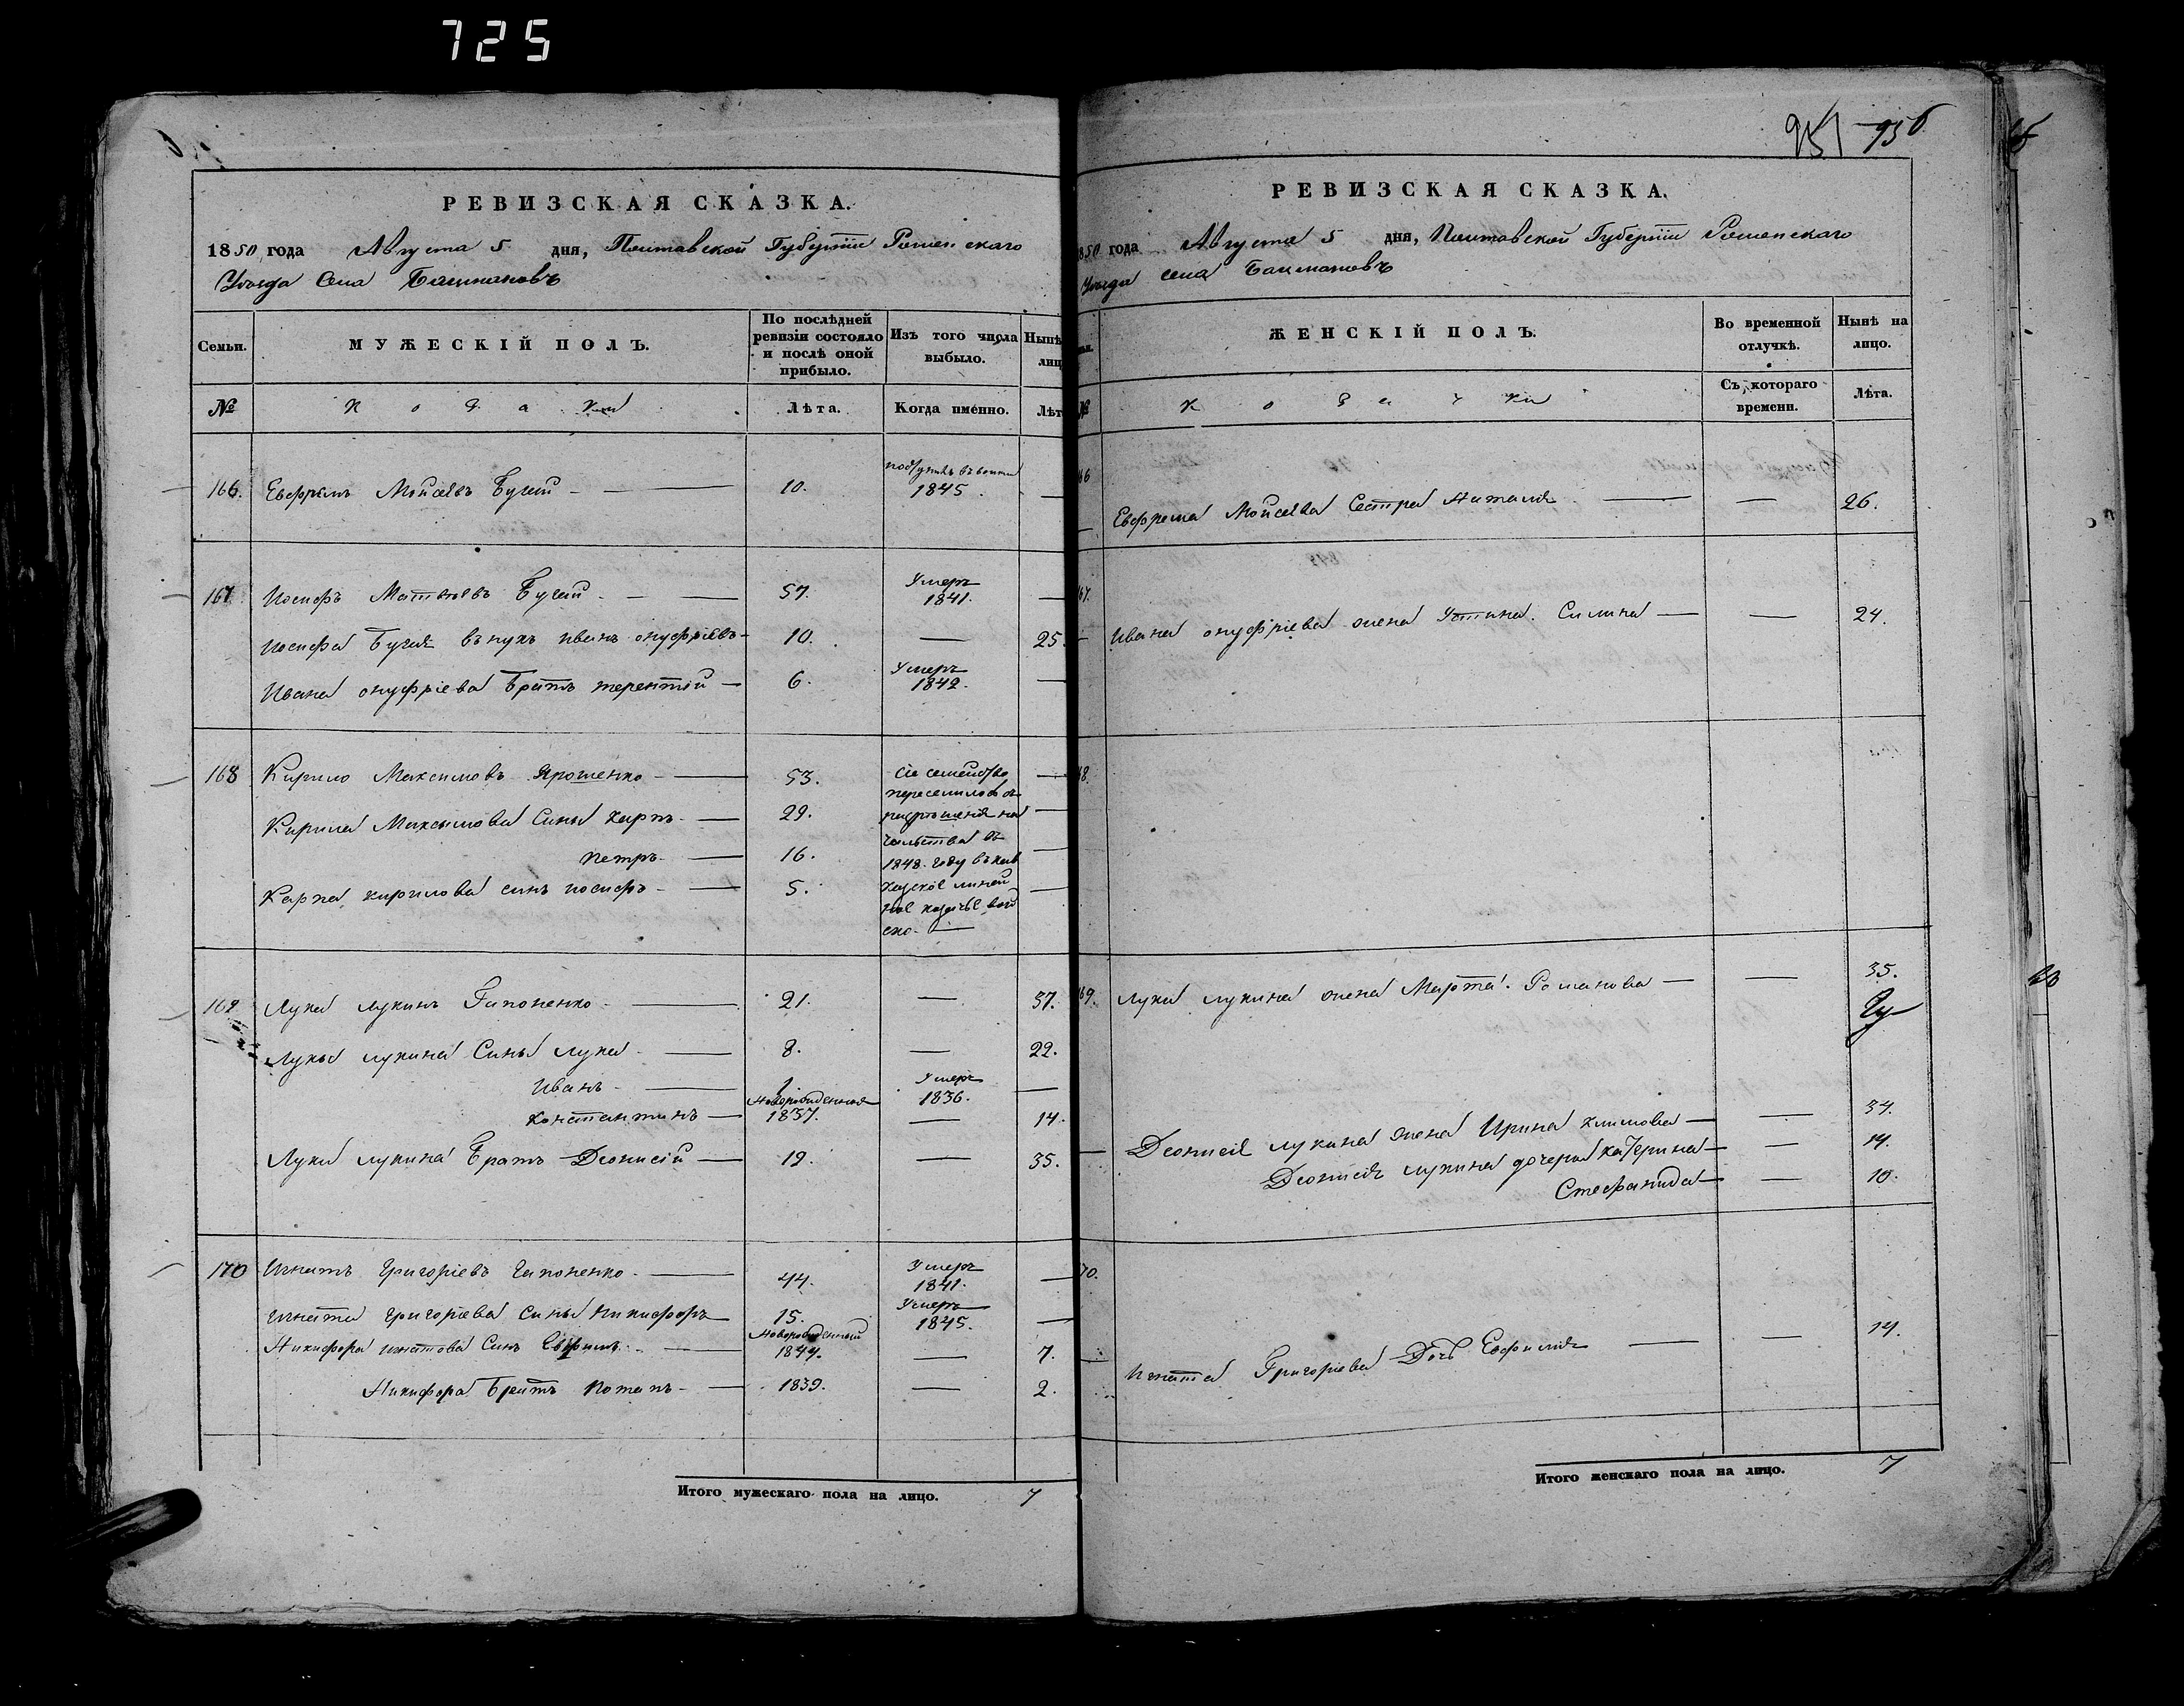 725
РЕВИЗСКАЯ СКАЗКА.
1850 года Августа 5 дня, Полтавской Губернiи Роменскаго
Уѣзда Села
Семьи. МУЖЕСКІЙ ПОЛЪ. По послѣдней ревизіи состояло и послѣ оной прибыло. Изъ того числа выбыло. Нынѣ лиц
№ Козаки Лѣта. Когда именно. Лѣт
166. Евфремъ Моисѣевъ Бугай 10. 1845.
167 Иосифъ Матвѣевъ Бугай 57. Умеръ 1841. —
Иосифа Бугая внукъ Иванъ онуфріевъ 10. — 25.
Ивана онуфріева Братъ терентій 6. Умеръ 1842. —
168 Кирило Максимовъ Ярошенко 53. Сіе семейство —
переселилось съ
Кирила Максимова Сыны Карпъ 29. разрѣшенія на —
чальства въ
петръ 16. 1848. году въ кав —
Карпа кирилова сынъ иосифъ 5. казское линей —
ное казачье вой
ско. —
169 Лука лукинъ Гапоненко 21. — 37.
Луки лукина Сыны лука 8. — 22.
Иванъ 1. Умеръ 1836. —
константинъ Новорожденный 1837. — 14.
Луки лукина Братъ Деонисій 19. — 35.
170 Игнатъ Григоріевъ Гапоненко 44. Умеръ 1841. —
игната григоріева сыны Никифоръ 15. Умеръ 1845. —
Никифора игнатова Сынъ Новорожденный 1844. — 7.
Никифора Братъ Потапъ 1839. — 2.
Итого мужескаго пола на лицо. 7
951 956
РЕВИЗСКАЯ СКАЗКА.
850 года Августа 5 дня, Полтавской Губерніи Роменскаго
Уѣзда села
ЖЕНСКІЙ ПОЛЪ. Во временной отлучкѣ. Нынѣ на лицо.
№ Козачки Съ котораго времени. Лѣта.
66 Евфрема Моисѣева Сестра Наталія — 26.
67. Ивана онуфріева жена Устина Силина — 24.
68.
69. Луки лукина жена Марта Романова — 35.
Деонисія лукина жена Ирина климова — 34.
Деонисія лукина дочери катерина — 14.
Стефанида — 10.
70.
Игната Григоріева Дочь Евфимія — 14.
Итого женскаго пола на лицо. 7